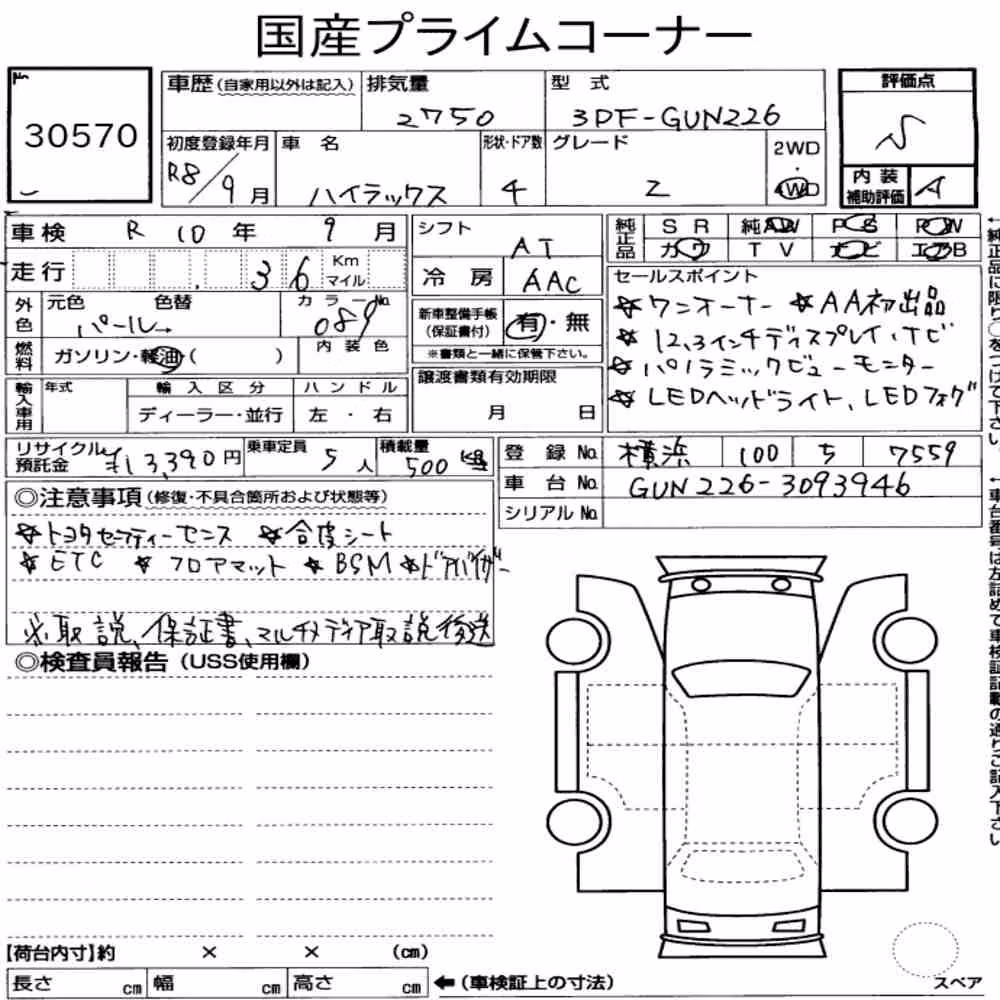 国産プライムコーナー
No.
30570
車歴(自家用以外は記入)
排気量
2750
型 式
3DF-GUN226
評価点
S
初度登録年月
R8/9月
車 名
ハイラックス
形状・ドア数
4
グレード
Z
2WD
・
4WD
内 装
補助評価
A
車検 R 10 年 9 月
シフト
AT
純正品
SR 純AW PS PW
カワ TV ナビ エアB
走行 36 Km マイル
冷 房
AAC
セールスポイント
☆ワンオーナー ☆AA初出品
☆12.3インチディスプレイ、ナビ
☆パノラミックビューモニター
☆LEDヘッドライト、LEDフォグ
外色
元色 色替
パール→
カラーNo.
089
新車整備手帳
(保証書付)
有・無
※書類と一緒に保管下さい。
燃料
ガソリン・軽油( )
内 装 色
輸入車用
年式
輸 入 区 分
ディーラー・並行
ハ ン ド ル
左 ・ 右
譲渡書類有効期限
月 日
リサイクル預託金
¥13,390円
乗車定員
5人
積載量
500 kg
登 録 No. 横浜 100 ち 7559
車 台 No. GUN226-3093946
シリアル No.
◎注意事項(修復・不具合箇所および状態等)
☆トヨタセーフティーセンス ☆合皮シート
☆ETC ☆フロアマット ☆BSM ☆ドアバイザー
※取説、保証書、マルチメディア取説後送
◎検査員報告(USS使用欄)
【荷台内寸】約 × × (cm)
長さ cm 幅 cm 高さ cm ←(車検証上の寸法)
スペア
←純正品に限り○をつけて下さい。
←車台番号は左詰めで車検証記載の通りご記入下さい